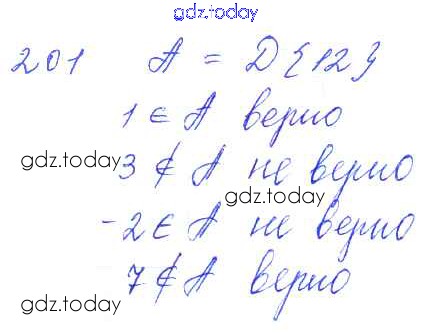 gdz.today
201 A = D{12}
1 ∈ A верно
gdz.today 3 ∉ A не верно
gdz.today
-2 ∈ A не верно
7 ∉ A верно
gdz.today